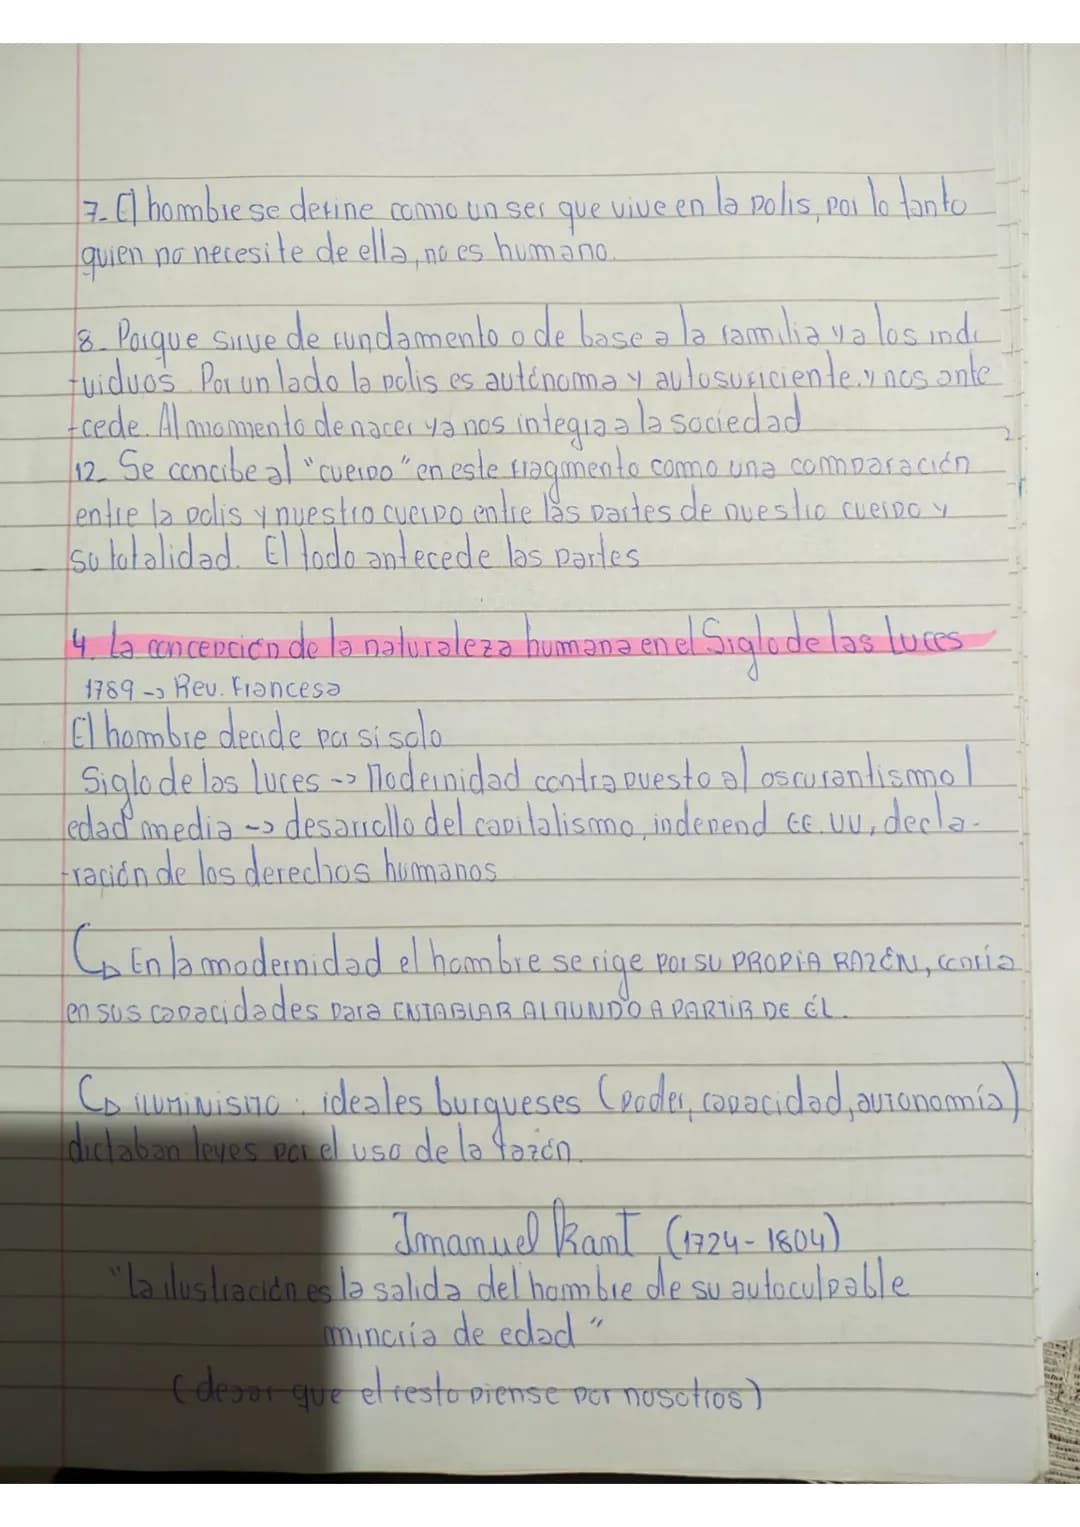 7- El hombre se define como un ser que vive en la polis, por lo tanto
quien no necesite de ella, no es humano.
8- Porque sirve de fundamento o de base a la familia y a los indi
-viduos. Por un lado la polis es autónoma y autosuficiente. y nos ante
-cede. Al momento de nacer ya nos integra a la sociedad
12- Se concibe al "cuerpo" en este fragmento como una comparación
entre la polis y nuestro cuerpo entre las partes de nuestro cuerpo y
su totalidad. El todo antecede las partes
4. La concepción de la naturaleza humana en el Siglo de las Luces
1789 -> Rev. Francesa
El hombre decide por si solo
Siglo de las luces -> Modernidad contrapuesto al oscurantismo |
edad media -> desarrollo del capitalismo, independ EE.UU, decla-
-ración de los derechos humanos
En la modernidad el hombre se rige por SU PROPIA RAZÓN, confía
en sus capacidades para ENTABLAR AL MUNDO A PARTIR DE ÉL.
ILUMINISMO: ideales burgueses (poder, capacidad, autonomía)
dictaban leyes por el uso de la razón.
Imanuel Kant (1724-1804)
"la ilustración es la salida del hombre de su autoculpable
minoría de edad"
(dejar que el resto piense por nosotros)